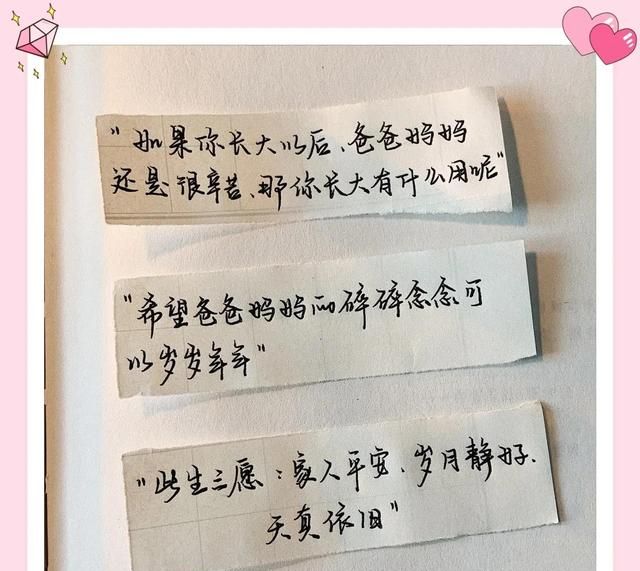 "如果你长大以后、爸爸妈妈
还是很辛苦、那你长大有什么用呢"
"希望爸爸妈妈的碎碎念念可
以岁岁年年"
"此生三愿：家人平安、岁月静好.
天真依旧"